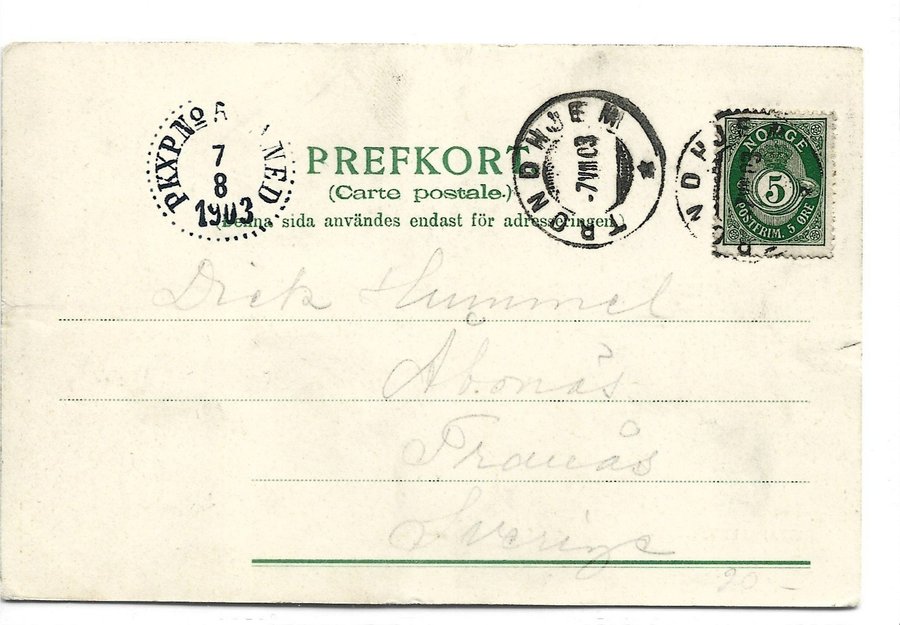 PKXP.No NED
7
8
1903
PREFKORT
(Carte postale.)
(Denna sida användes endast för adresseringen.)
TRONDHJEM
7 VIII 03
NORGE
5
POSTFRIM. 5 ØRE
Dick Hummel
Åbonäs
Tranås
Sverige
90 –